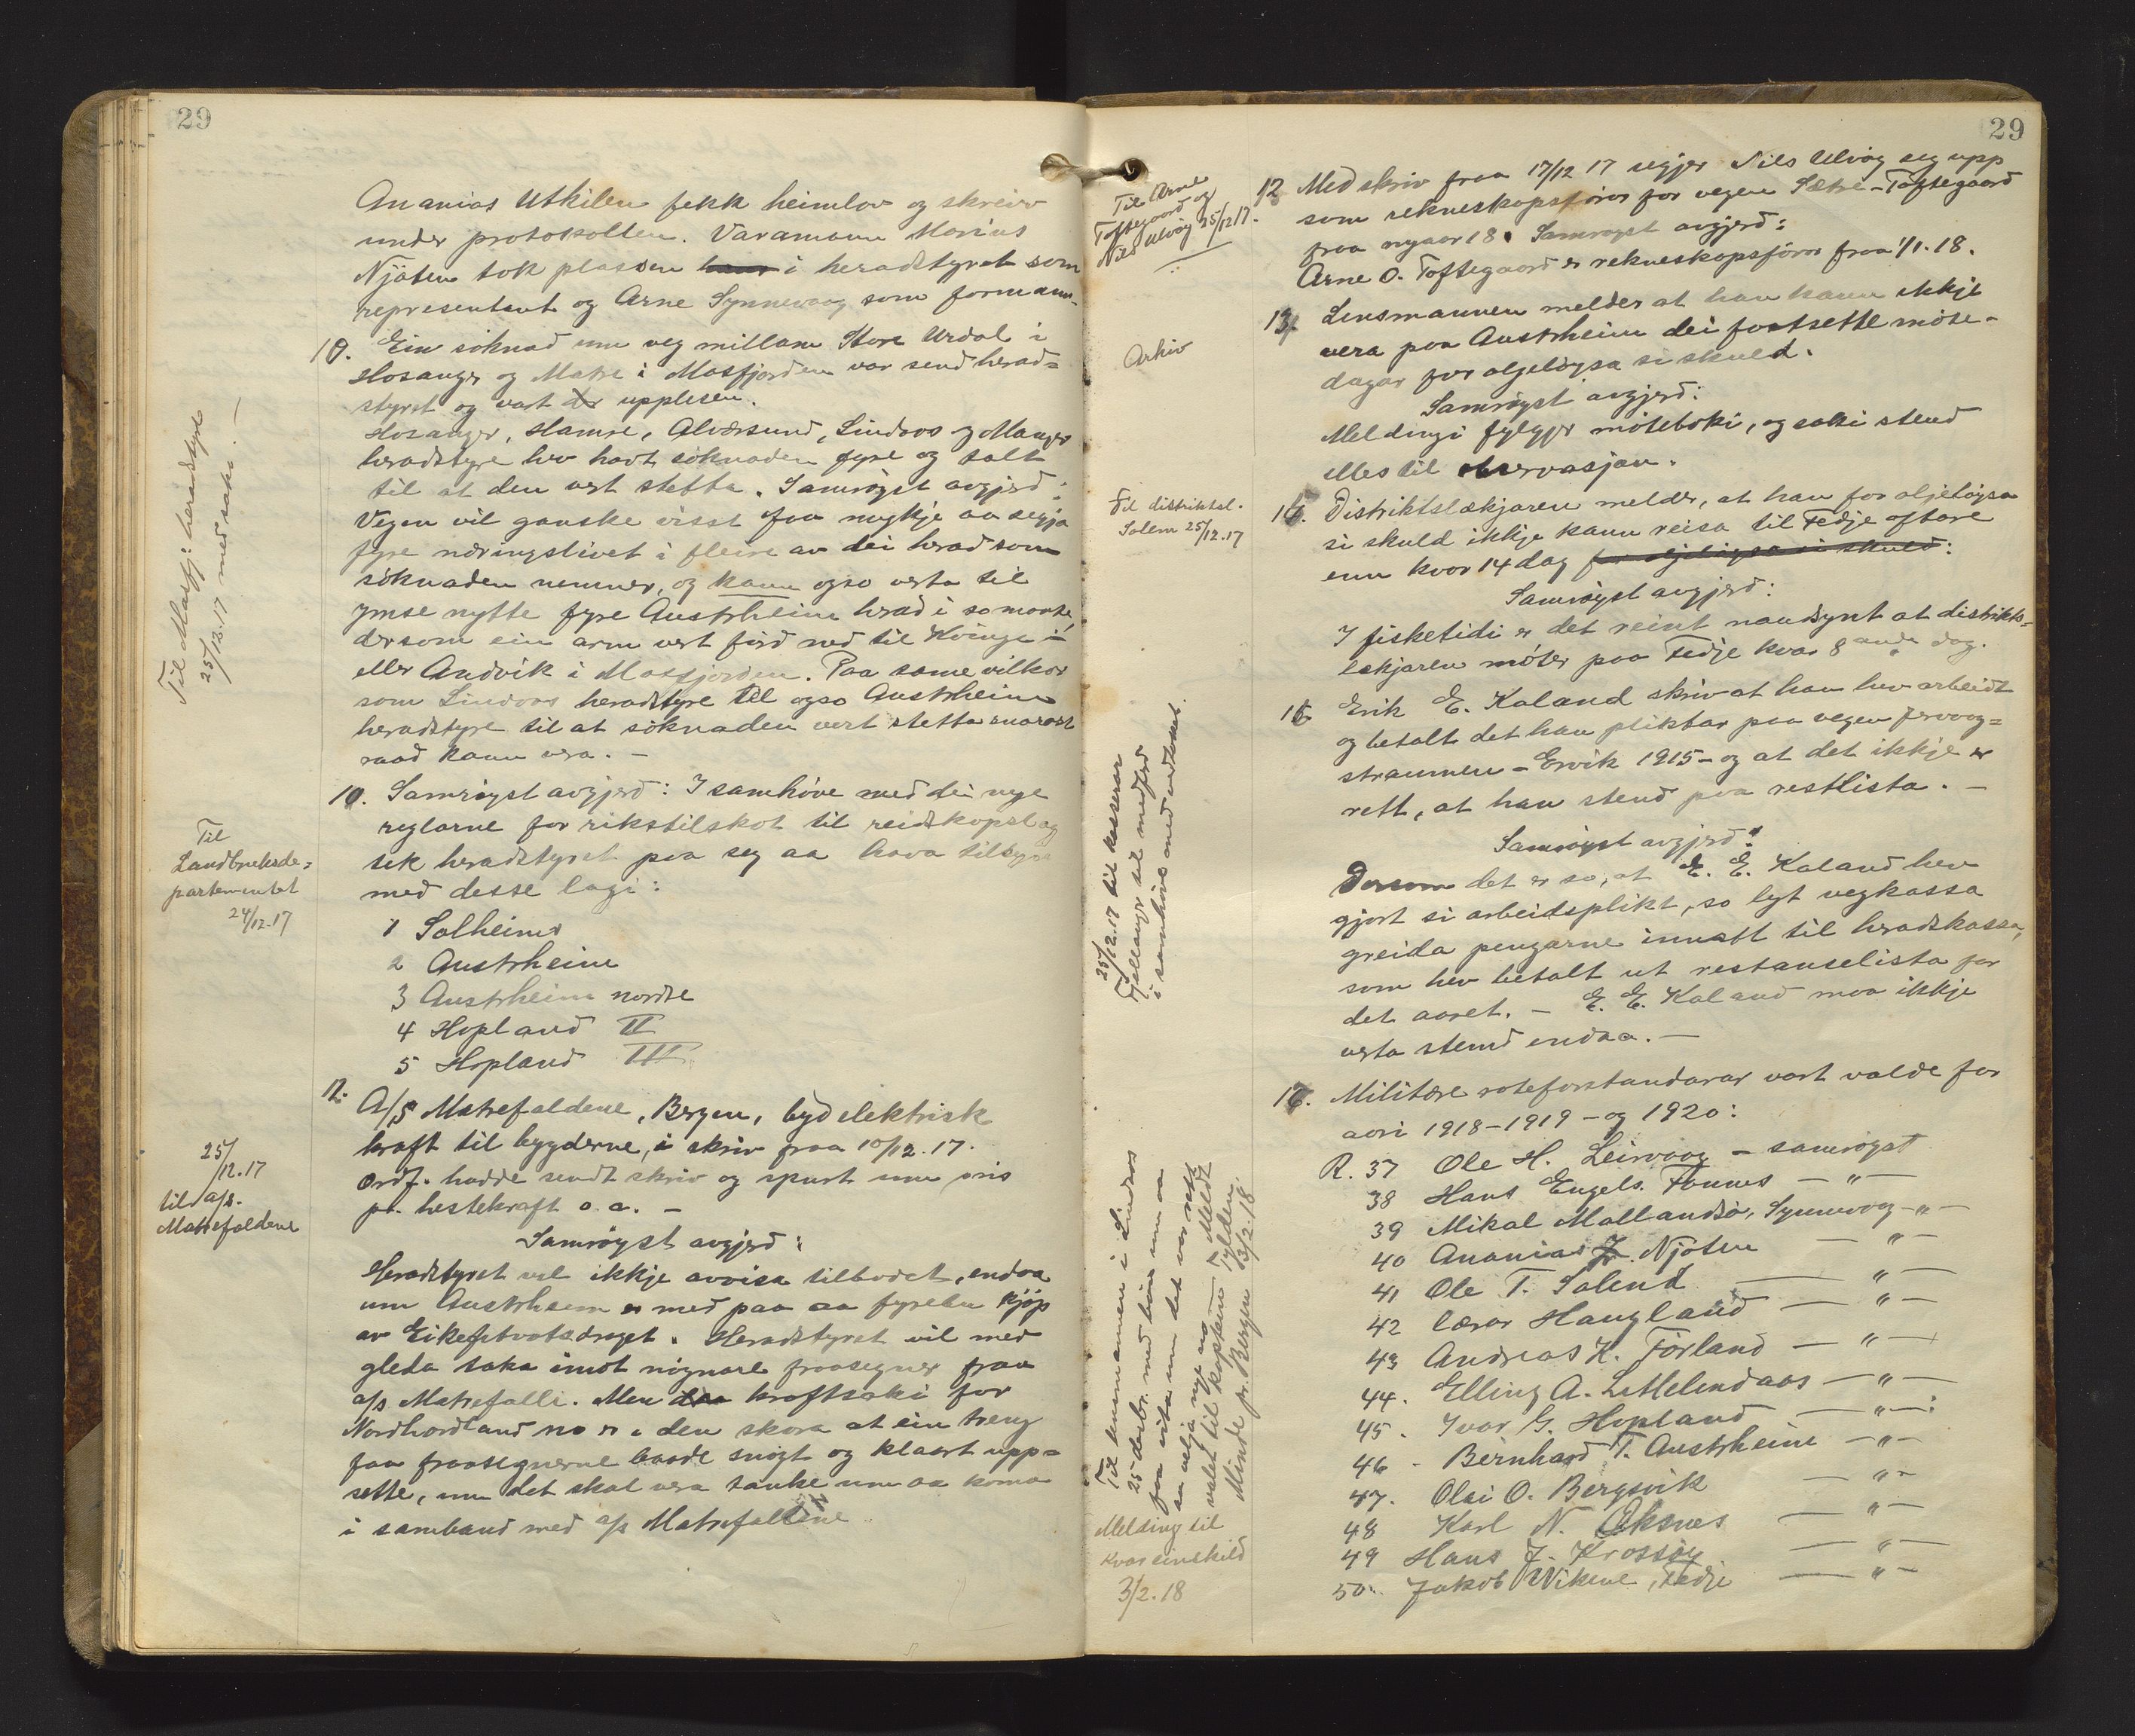 29
Ananias Utkilen fekk heimlov og skreiv
under protokollen. Varamann Marius
Njøten tok plassen hans i heradstyret som
representant og Arne Synnevaag som formann.
10. Ein søknad um veg millom Store Urdal i
Hosanger og Matre i Masfjorden var send herad=
styret og vart der upplesen.
Hosanger, Hamre, Alversund, Lindaas og Manger
heradstyre hev havt søknaden fyre og talt
til at den vert stetta. Samrøyst avgjerd:
Vegen vil ganske visst faa mykje aa segja
fyre næringslivet i fleire av dei herad som
søknaden nemner, og kann ogso verta til
ymse nytte fyre Austrheim herad i so maate,
dersom ein arm vert førd ned til Kvinge i
eller Andvik i Masfjorden. Paa same vilkor
som Lindaas heradstyre til ogso Austrheim
heradstyre til at søknaden vert stetta snarast
raad kann vera. -
Til Masfj. heradstyre
25/12.17 med saki. -
10. Samrøyst avgjerd: I samhøve med dei nye
reglarne for rikstilskot til reidskapslag
tek heradstyret paa seg aa hava tilsyn
med desse lagi:
1 Solheim
2 Austrheim
3 Austrheim nordre
4 Hopland II
5 Hopland III
Til
Landbruksde=
partementet
24/12.17
12. A/S Matrefaldene, Bergen, byd elektrisk
kraft til bygderne, i skriv fraa 10/12.17.
Ordf. hadde sendt skriv og spurt um pris
pr. hestekraft o.a. -
Samrøyst avgjerd:
Heradstyret vil ikkje avvisa tilbodet, endaa
um Austrheim er med paa aa fyrebu kjøp
av Eikefetvatsdraget. Heradstyret vil med
gleda taka imot nignare fraasegner fraa
a/s Matrefalli. Men daa kraftsaki for
Nordhordland no er i den skora at ein treng
faa fraasegnerne baade snøgt og klaart upp=
sette, um det skal vera tanke um aa koma
i samband med a/s Matrefaldene.
25/12.17
til a/s.
Matrefaldene
29
12 Med skriv fraa 17/12 17 segjer Nils Ulvøy seg upp
som rekneskapsførar for vegen Sætre-Toftegaard
fraa nyaar 18. Samrøyst avgjerd:
Arne O. Toftegaard er rekneskapsførar fraa 1/1.18.
Til Arne
Toftegaard og
Nils Ulvøy 25/12 17.
13. Lensmannen melder at han kann ikkje
vera paa Austrheim dei fastsette møte-
dagar for oljeløysa si skuld.
Samrøyst avgjerd:
Meldingi fylgjer møteboki, og saki stend
elles til observasjon.
Arkiv
15. Distriktslækjaren melder, at han for oljeløysa
si skuld ikkje kann reisa til Fedje oftare
enn kvar 14 dag for oljeløysa si skuld:
Samrøyst avgjerd:
I fisketidi er det reint naudsynt at distrikts=
lækjaren møter paa Fedje kvar 8 ande dag.
Til distriktsl.
Solem 25/12.17
16 Erik E. Kaland skriv at han hev arbeidt
og betalt det han pliktar paa vegen Fervaag=
straumen - Ervik 1915 - og at det ikkje er
rett, at han stend paa restlista. -
Samrøyst avgjerd:
Dersom det er so, at E. E. Kaland hev
gjort si arbeidsplikt, so lyt vegkassa
greida pengarne innatt til heradskassa,
som hev betalt ut restanselista for
det aaret. - E. E. Kaland maa ikkje
verta stemd endaa. -
25/12.17 til kasserar
Fjellanger til medferd
i samhøve med vedtaket.
17. Militære roteforstandarar vart valde for
aari 1918-1919 - og 1920:
R. 37 Ole H. Leirvaag - samrøyst
38 Hans Engels. Fonnes - " -
39 Mikal Mallandsø, Synnevaag - " -
40 Ananias J. Njøten - " -
41 Ole T. Solend - " -
42 lærar Haugland - " -
43 Andreas K. Førland - " -
44. Elling A. Littlelindaas - " -
45. Ivar G. Hopland - " -
46 - Bernhard T. Austrheim - " -
47. Olai O. Bergsvik - " -
48 Karl N. Øksnes - " -
49 Hans J. Krossøy - " -
50. Jakob Vikene, Fedje - " -
Til lensmannen i Lindaas
25 decbr. med bøn um aa
faa vita um det var rett
aa velja nye no. Meldt
valet til kaptein Tylden,
Minde pr. Bergen 3/2.18.
Melding til
kvar einskild
3/2.18